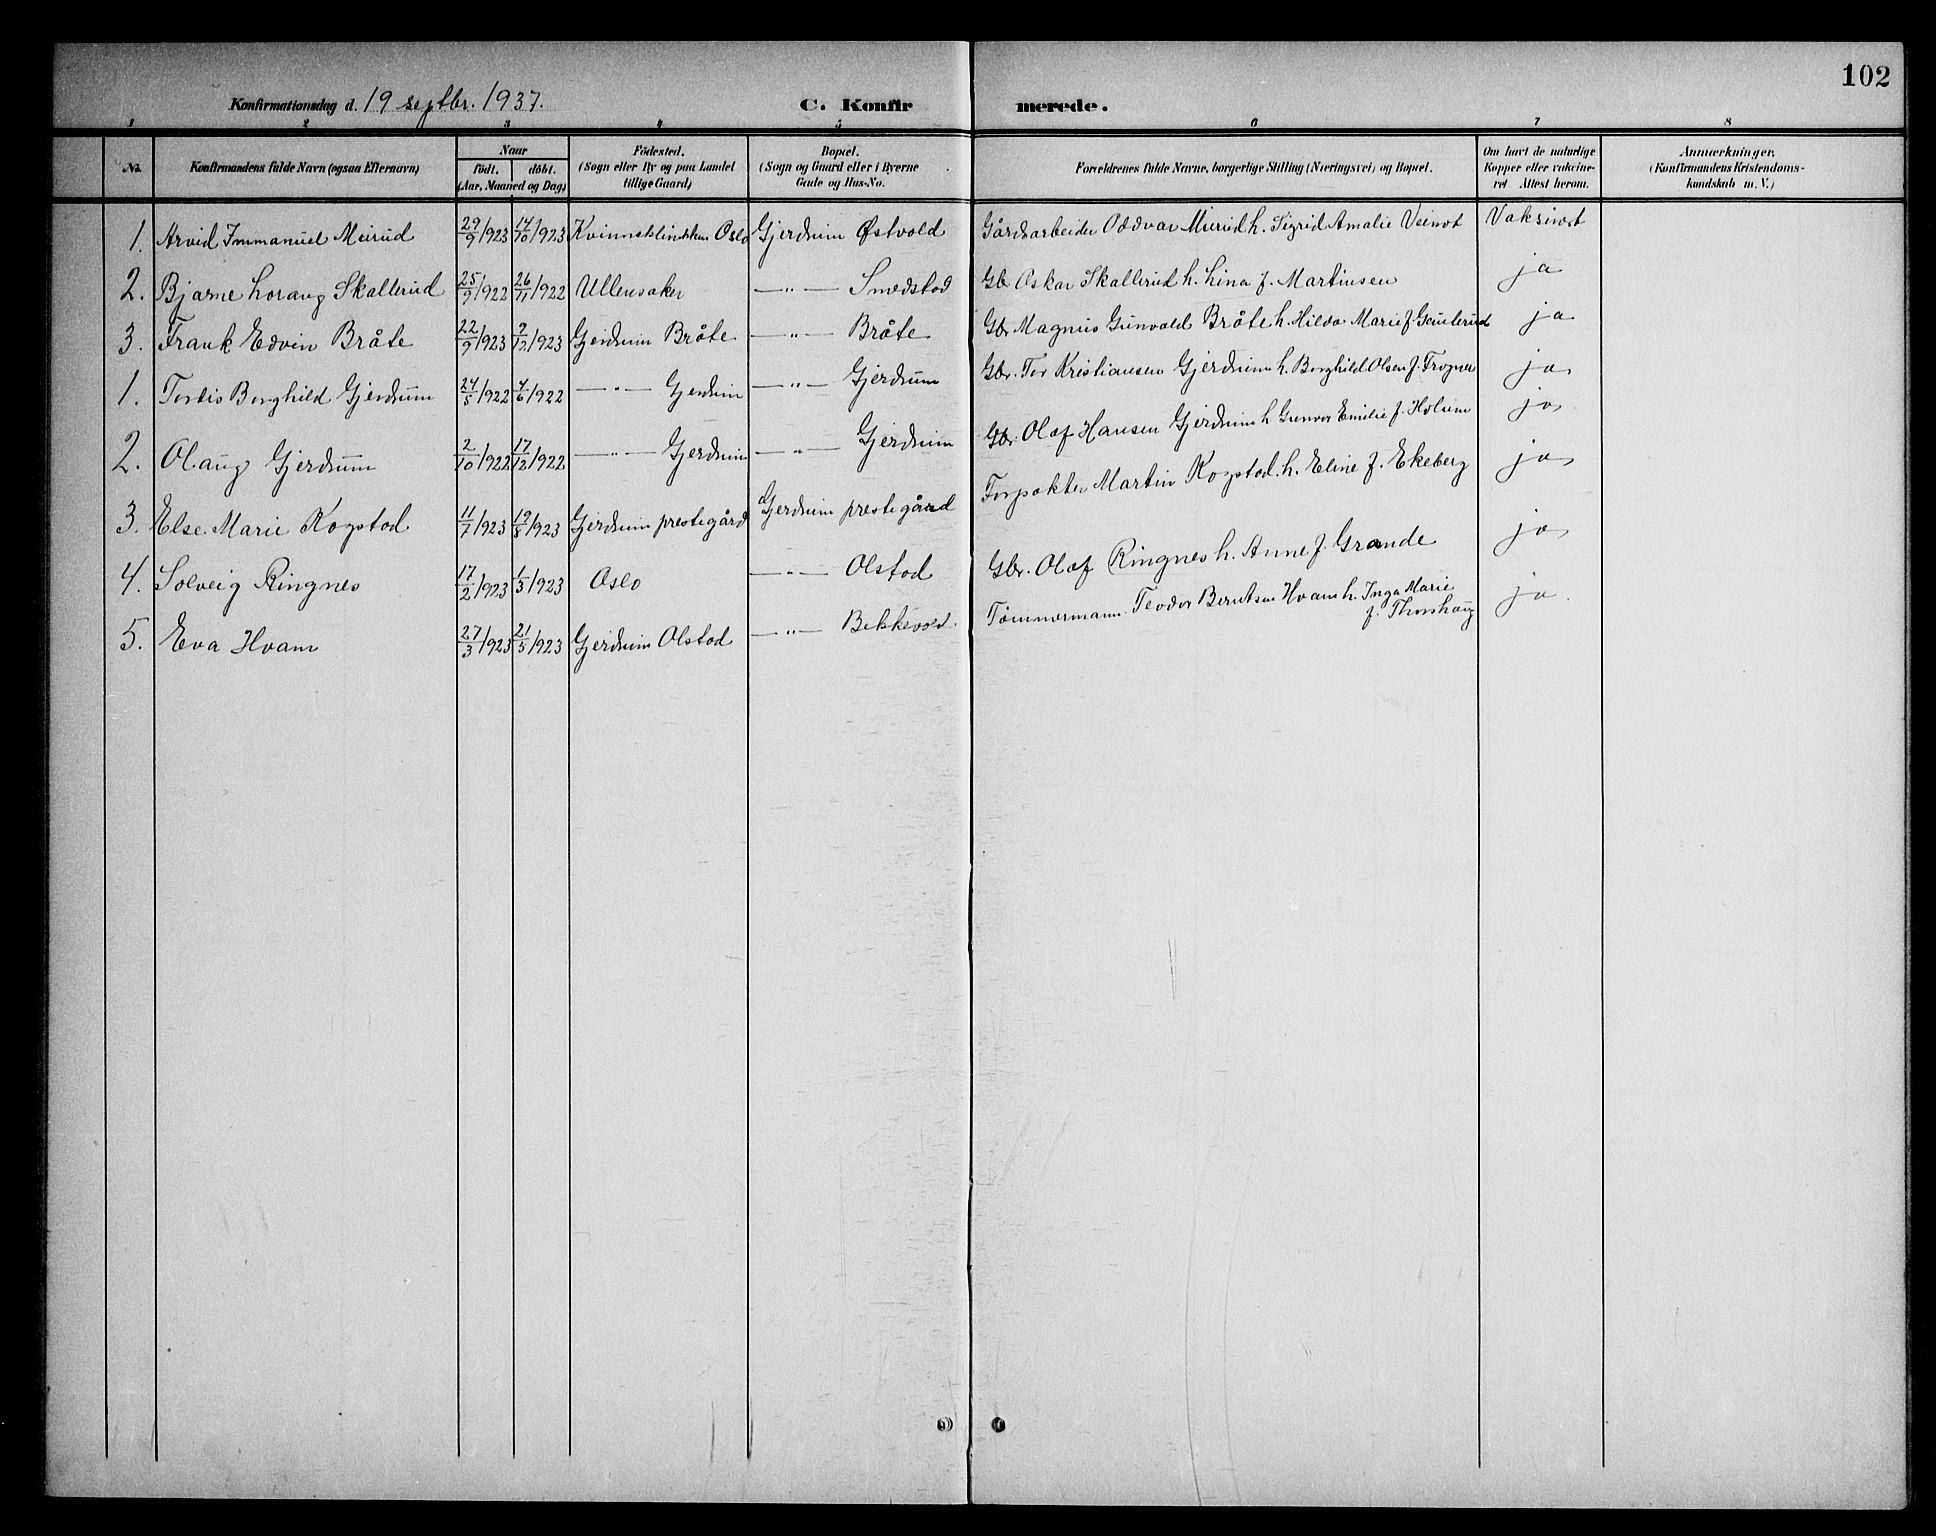 102
Konfirmationsdag d. 19 septbr. 1937.
C. Konfirmerede.
1 2 3 4 5 6 7 8
No. Konfirmandens fulde Navn (ogsaa Efternavn) Naar födt. döbt. (Aar, Maaned og Dag) Födested. (Sogn eller By og paa Landet tillige Gaard) Bopæl. (Sogn og Gaard eller i Byerne Gade og Hus-No. Forældrenes fulde Navne, borgerlige Stilling (Næringsvei) og Bopæl. Om havt de naturlige Kopper eller vakcineret Attest herom. Anmærkninger, (Konfirmandens Kristendomskundskab m. V.)
1. Arvid Immanuel Meirud 29/9 1923 14/10 1923 Kvinneklinikken Oslo Gjerdrum Østvold Gårdsarbeider Oddvar Mierud h. Sigrid Amalie Vaksinert
2. Bjarne Horang Skallerud 25/9 1922 26/11 1922 Ullensaker —"— Smedstad Gbr Oskar Skallerud h. Lina f. Martinsen ja
3. Frank Edvin Bråte 22/9 1923 9/12 1923 Gjerdrum Bråte —"— Bråte Gbr. Magnus Gunvald Bråte h. Hilda Marie f. ja
1. Tordis Borghild Gjerdrum 24/5 1922 4/6 1922 —"— Gjerdrum —"— Gjerdrum Gbr. Tor Kristiansen Gjerdrum h. Borghild Olsen f. Frogner ja
2. Olaug Gjerdrum 2/10 1922 17/12 1922 —"— Gjerdrum —"— Gjerdrum Gbr. Olaf Hansen Gjerdrum h Gunvor Emilie f. Holum ja
3. Else Marie Kogstad 11/7 1923 19/8 1923 Gjerdrum prestegård Gjerdrum prestegård Forpakter Martin Kogstad h. Eline f. Ekeberg ja
4. Solveig Ringnes 17/2 1923 1/3 1923 Oslo —"— Olstad Gbr. Olaf Ringnes h. Anne f. Grande ja
5. Eva Hvam 27/3 1923 21/5 1923 Gjerdrum Olstad —"— Bekkevold. Tømmermann Teodor Berntsen Hvam h. Inga Marie f. Thorshaug ja